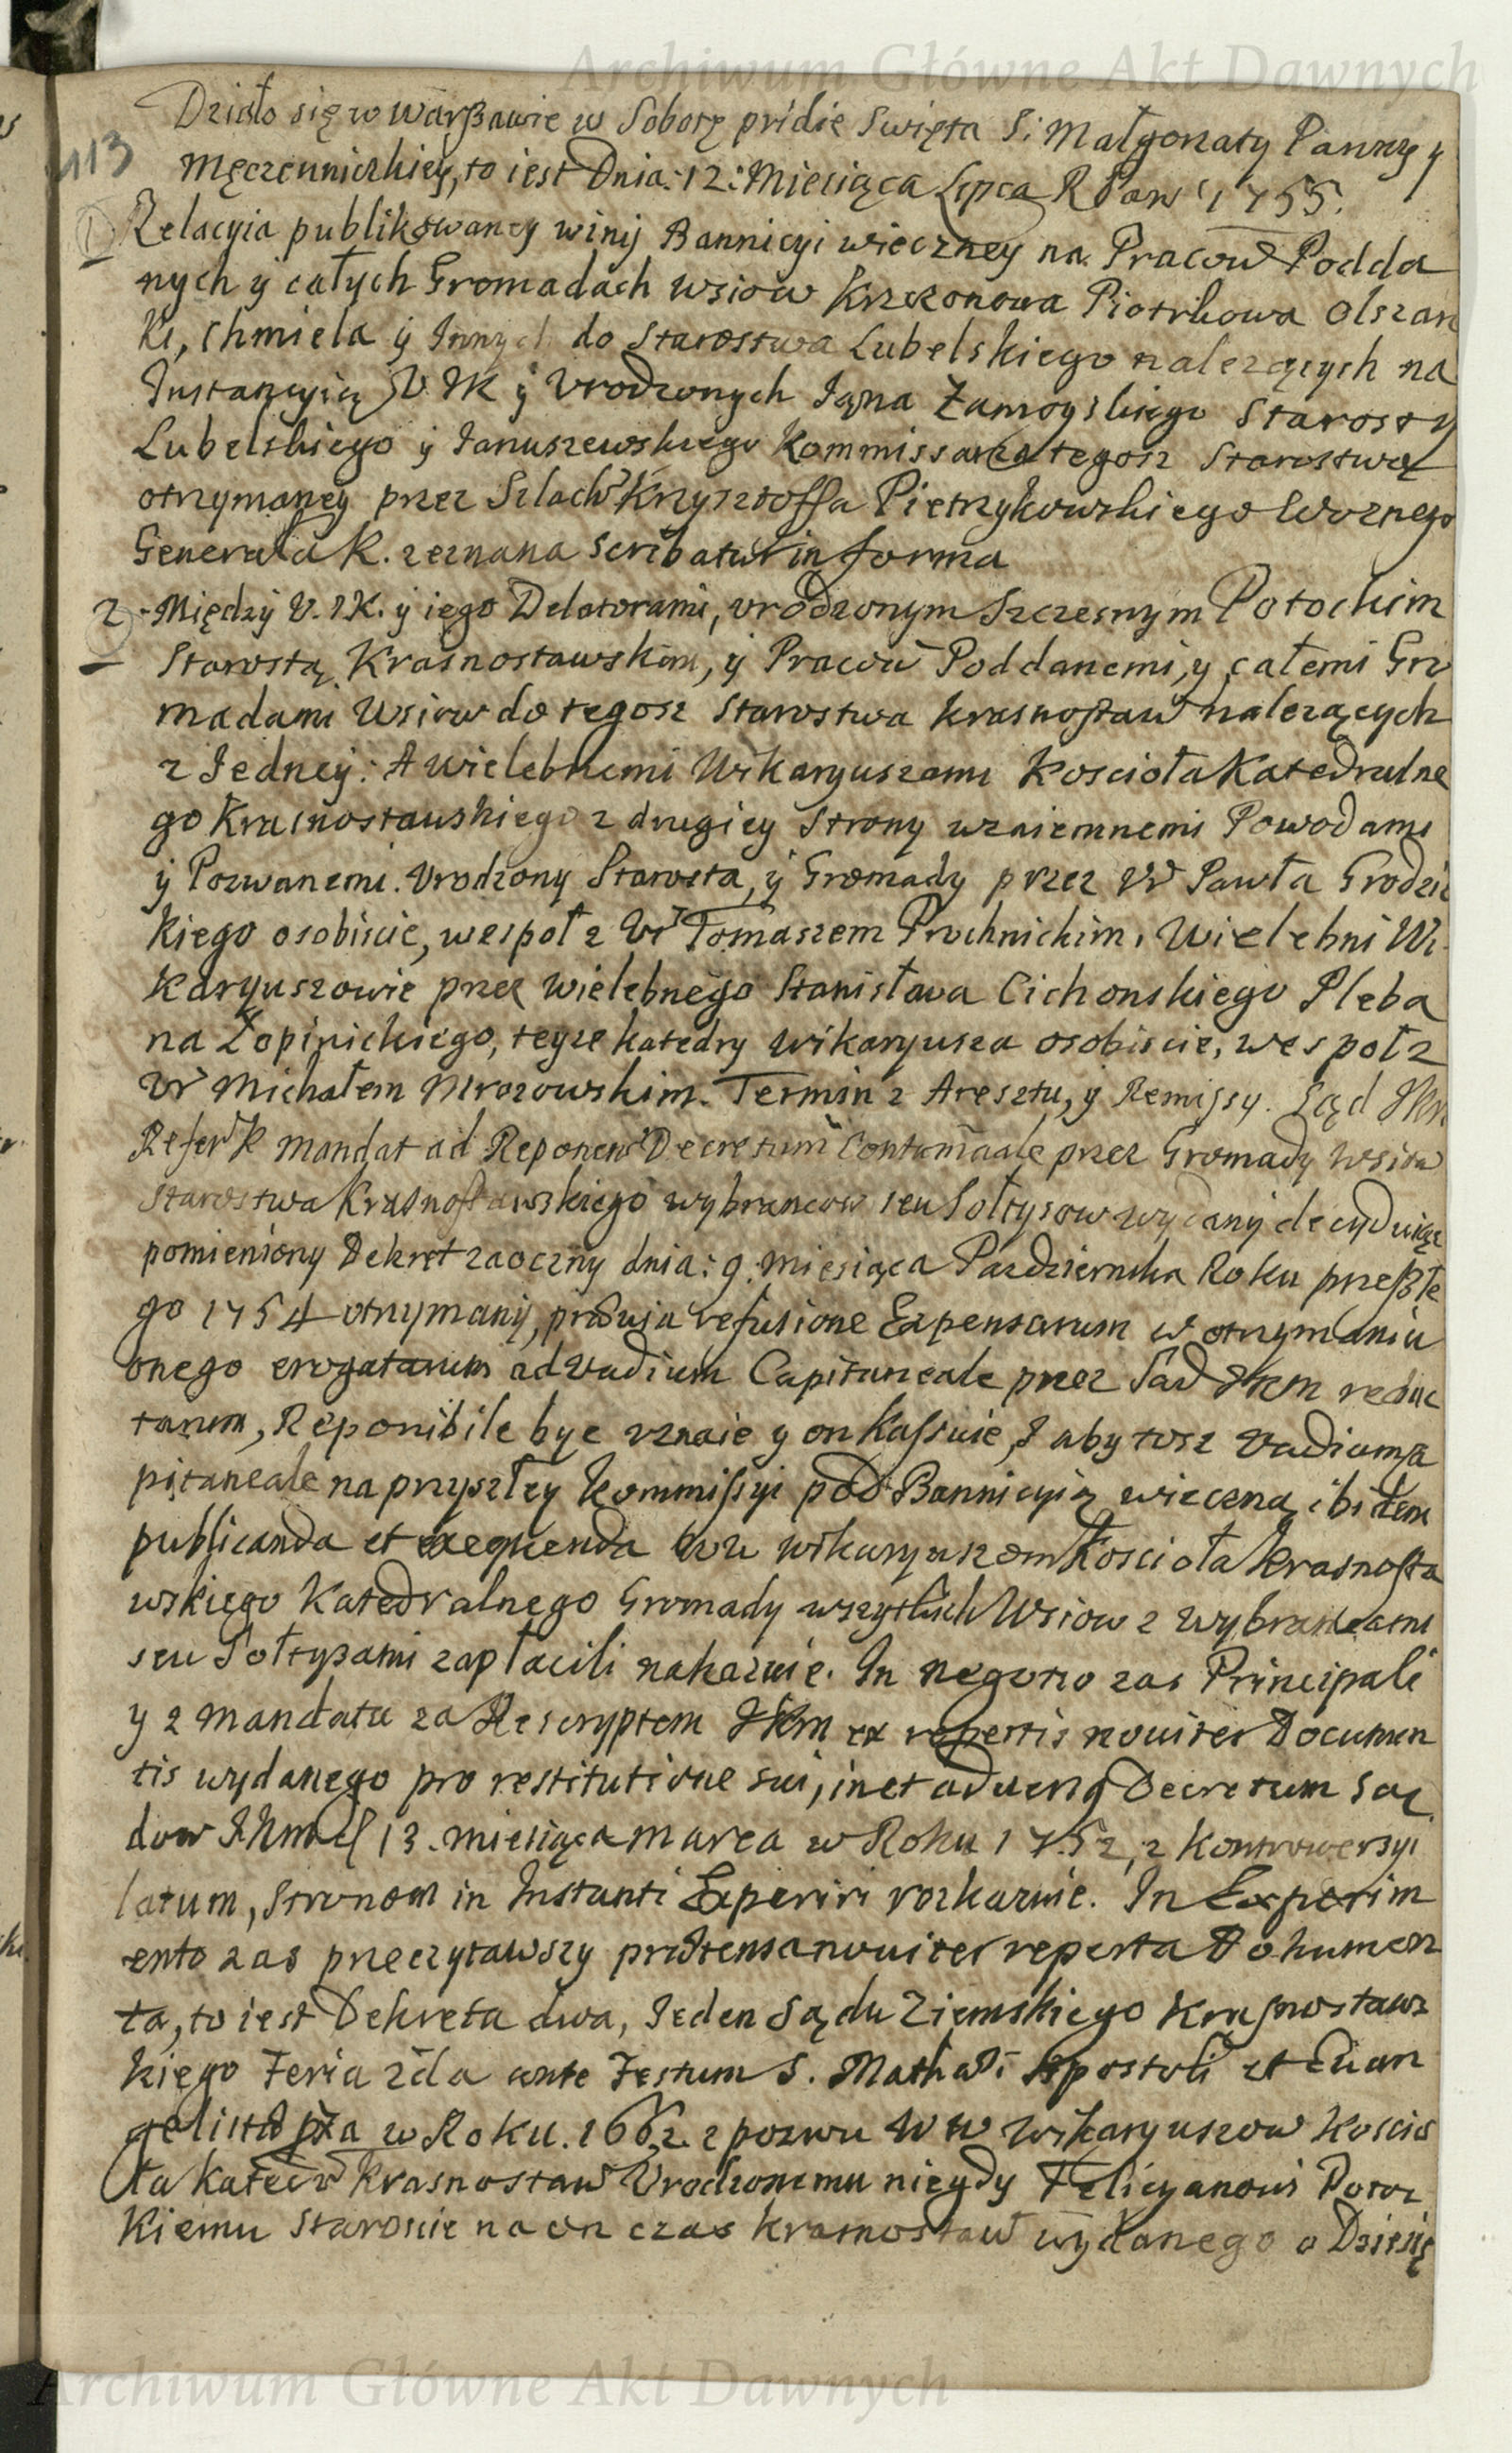 Archiwum Główne Akt Dawnych
113
Działo się w Warszawie w Sobotę pridie Swięta S: Małgorzaty Panny y
Męczenniczkiey, to iest Dnia: 12: Miesiąca Lipca R Pań 1755.
1 Relacyia publikowaney winy Bannicyi wieczney na Pracow Podda
nych ÿ całych Gromadach wsiow Krzczonowa Piotrkowa Olszan
ki, Chmiela ÿ Innych do Starostwa Lubelskiego nalezących na
Instancyią V. IK ÿ Vrodzonych Jana Zamoyskiego Starosty
Lubelskiego ÿ Januszewskiego Kommissarza tegosz Starostwa
otrzymaney przez Szlach Krzysztoffa Pietrzykowskiego Woznego
Generała K. zeznana scribatur in forma
2 Między V. IK. ÿ iego Delatorami, vrodzonym Szczesnym Potockim
Starostą Krasnostawskim, ÿ Pracow Poddanemi, y całemi Gro
madami Wsiow do tegosz Starostwa Krasnostaw nalezących
z Jedney: A Wielebnemi Wikaryuszami Koscioła Katedralne
go Krasnostawskiego z drugiey Strony wzaiemnemi Powodami
ÿ Pozwanemi. Vrodzony Starosta, ÿ Gromady przez Vr Pawła Grodzic
kiego osobiscie, wespoł z Vr Tomaszem Prochnickim, Wielebni Wi
karyuszowie przez Wielebnego Stanisława Cichonskiego Pleba
na Łopinickiego, teyze katedry Wikaryusza osobiscie, wespoł z
Vr Michałem Mrozowskim. Termin z Aresztu, ÿ Remissy. Sąd JKm
Refer K Mandat ad Reponen Decretum Contumaciale przez Gromady wsiow
Starostwa Krasnostawskiego wybrancow seu Sołtysow wydany decyduiąc
pomieniony Dekret zaoczny dnia: 9. Miesiąca Pazdziernika Roku przeszłe
go 1754 otrzymany, prævia refusione Expensarum w otrzymaniu
onego erogatarum ad vadium Capitaneale przez Sąd JKM reduc
tarum, Reponibile byc uznaie y on kassuie, I aby tosz vadium Ca
pitaneale na przyszłey Kommissyi pod Bannicyią wieczną ibidem
publicanda et exequenda WW Wikaryuszom Koscioła Krasnosta
wskiego Katedralnego Gromady wszytkich Wsiow z wybrancami
seu Sołtysami zapłacili nakazuie. In negotio zas Principali
y z Mandatu za Rescryptem JKM ex repertis noviter Documen
tis wydanego pro restitutione sui, in et adversus Decretum Są
dow JKM d 13. Miesiąca Marca w Roku 1752, z Kontrowersyi
latum, Stronom in Instanti Experiri rozkazuie. In Experim
ento zas przeczytawszy prætensa noviter reperta Dokumen
ta, to iest Dekreta dwa, Jeden Sądu Ziemskiego Krasnostaws
kiego Feria 2da ante Festum S. Mathæi Apostoli et Evan
gelistæ pxa w Roku. 1662. z pozwu WW Wikaryuszow Koscio
ła Kated Krasnostaw Vrodzonemu niegdy Felicyanowi Potoc
kiemu Staroscie na on czas Krasnostaw wydanego o Dziesię
Archiwum Główne Akt Dawnych